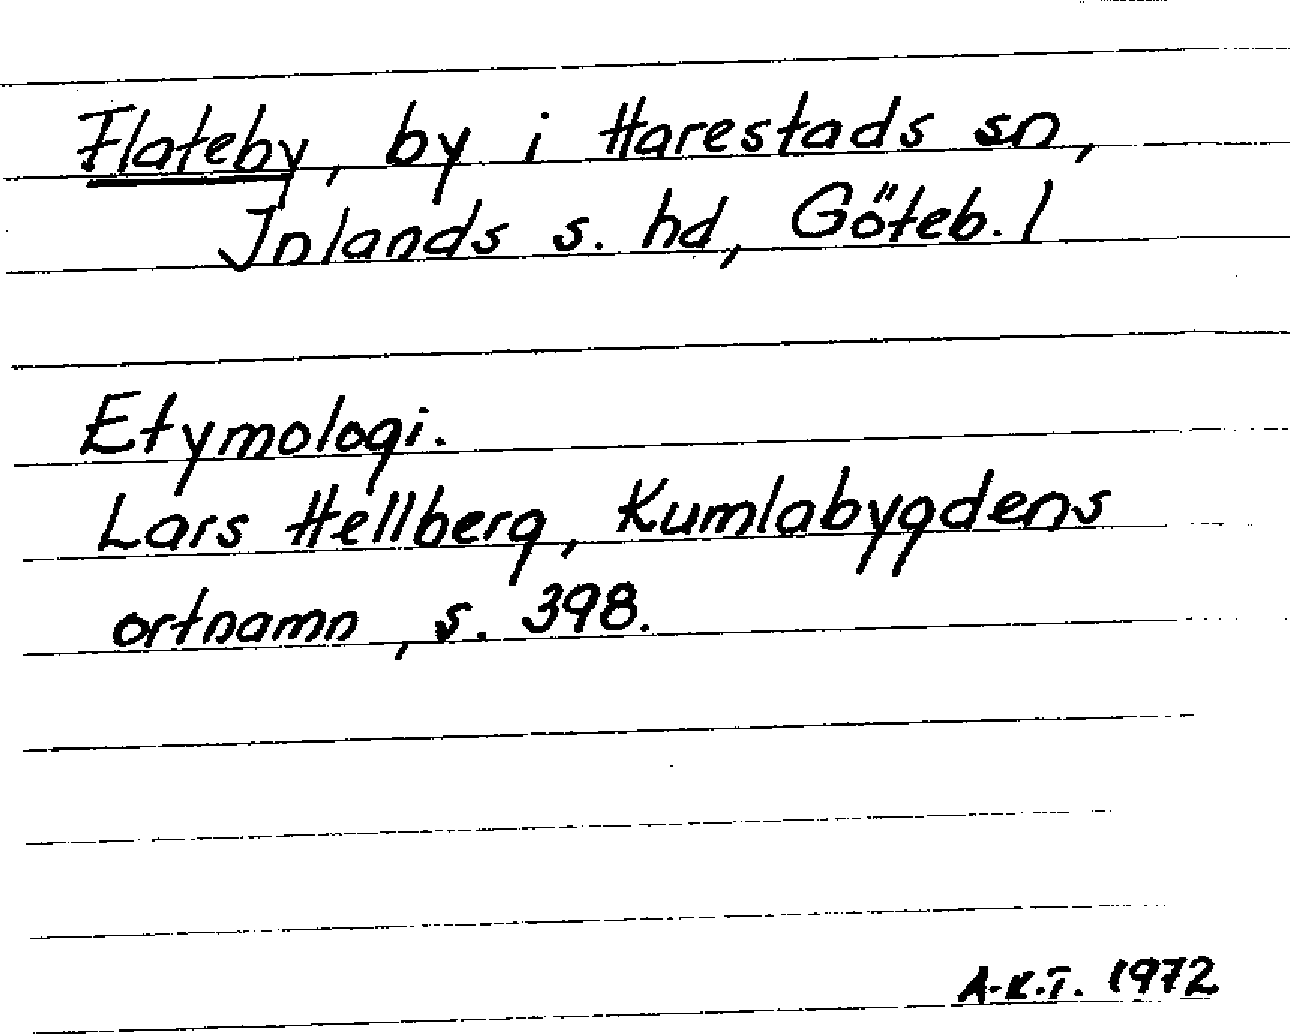 Flateby, by i Harestads sn,
Inlands s. hd, Göteb. l
Etymologi.
Lars Hellberg, Kumlabygdens
ortnamn, s. 398.
A-K.T. 1972